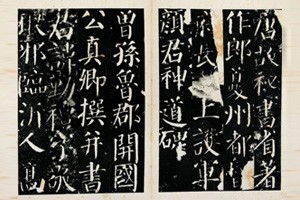 唐故秘書省著
作郎夔州都督
府長上護軍
顏君神道碑
曾孫魯郡開國
公真卿撰并書
君諱勤禮字敬
琅邪臨沂人高